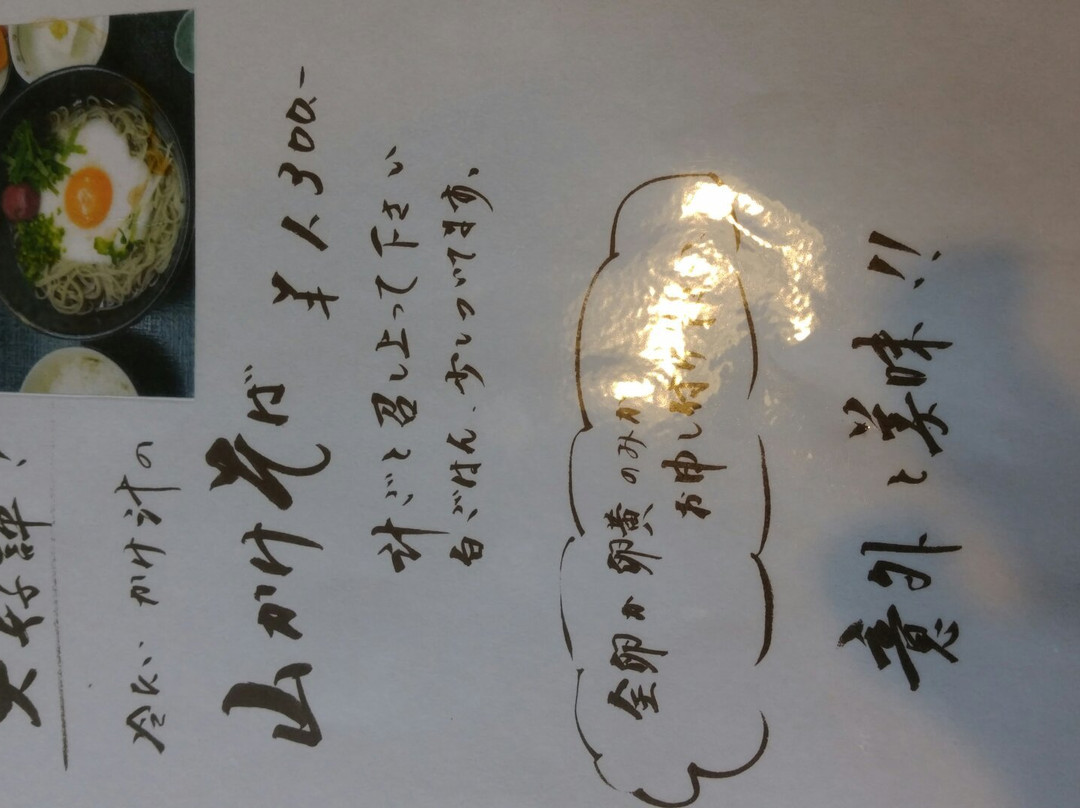 大好評!
冷たい かけ汁の
山かけそば ¥1,300.-
汁ごと召し上って下さい
白ごはん、少しついてます。
全卵か 卵黄のみか
お申し付け
意外と美味!!